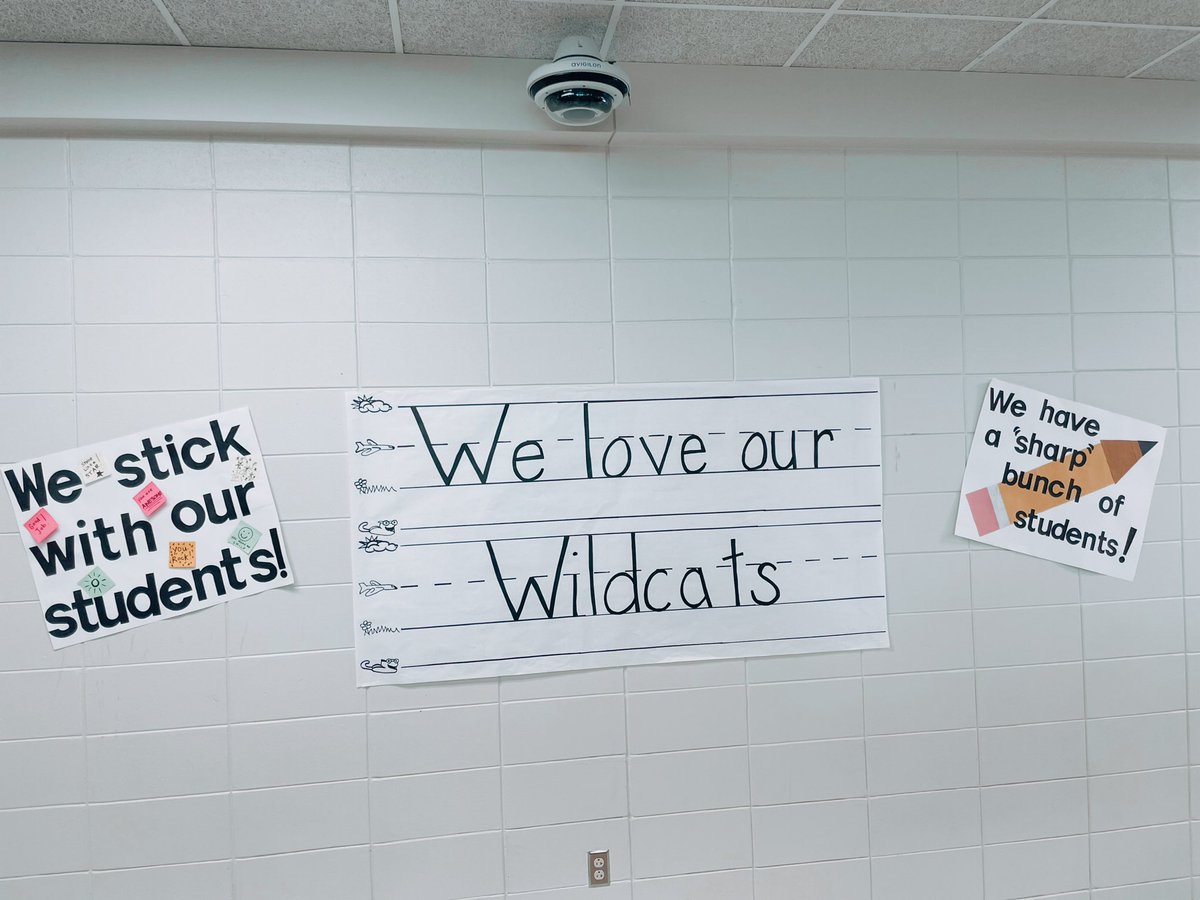 avigilon
We stick
with our
students!
Good
Job
you are
AWESOME
YOU
ROCK
We love our
Wildcats
We have
a "sharp"
bunch of
students!